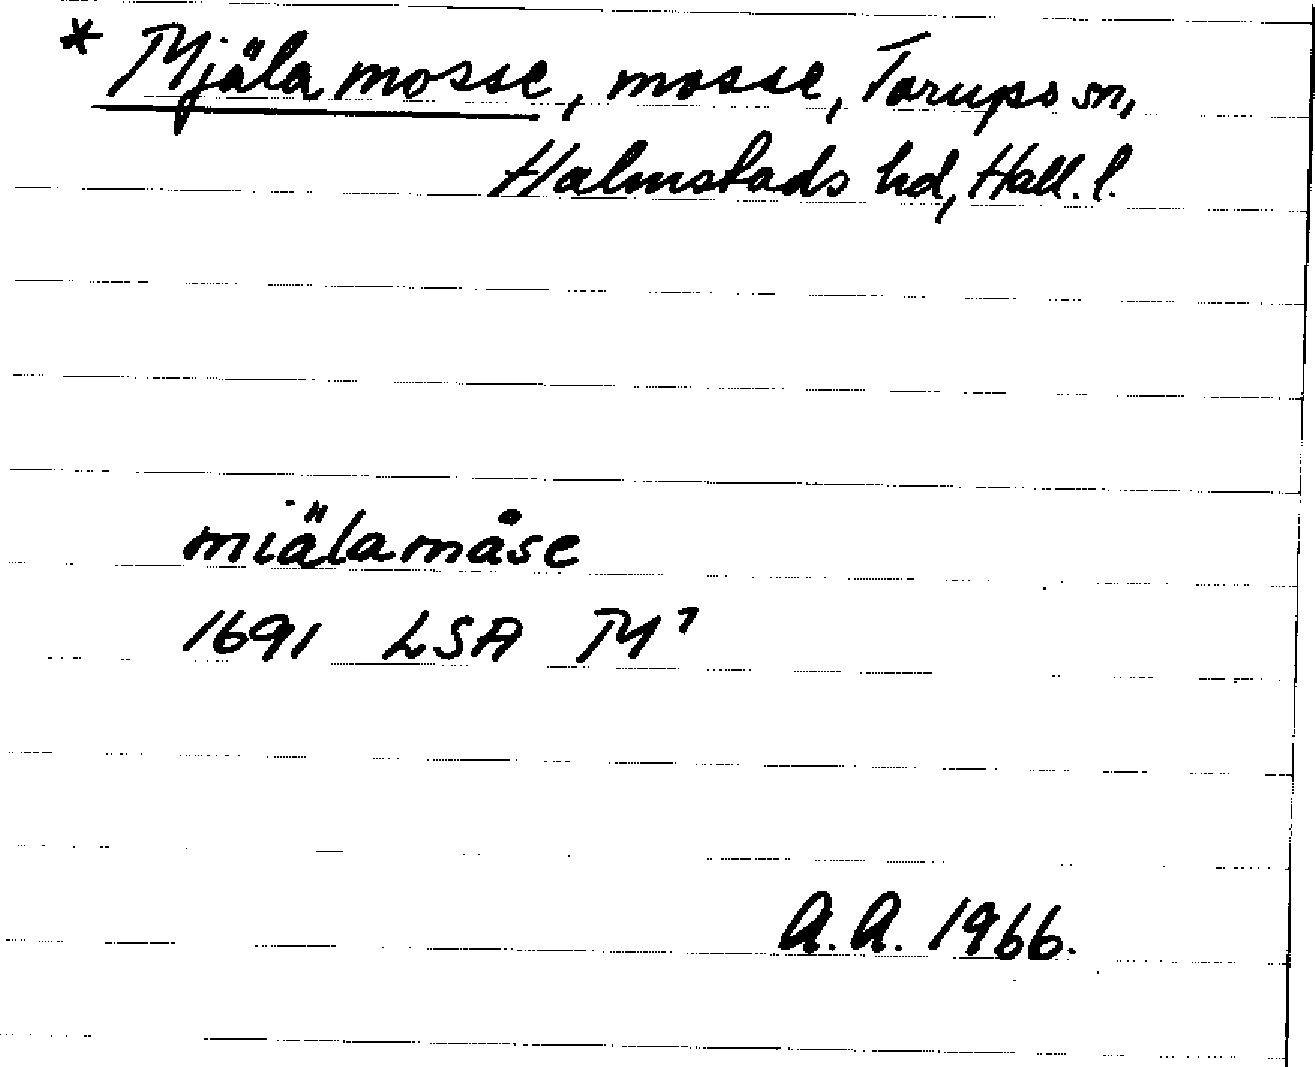 * Mjäla mosse, mosse, Torups sn,
Halmstads hd, Hall. l.
miälamåse
1691 LSA M⁷
A.A. 1966.